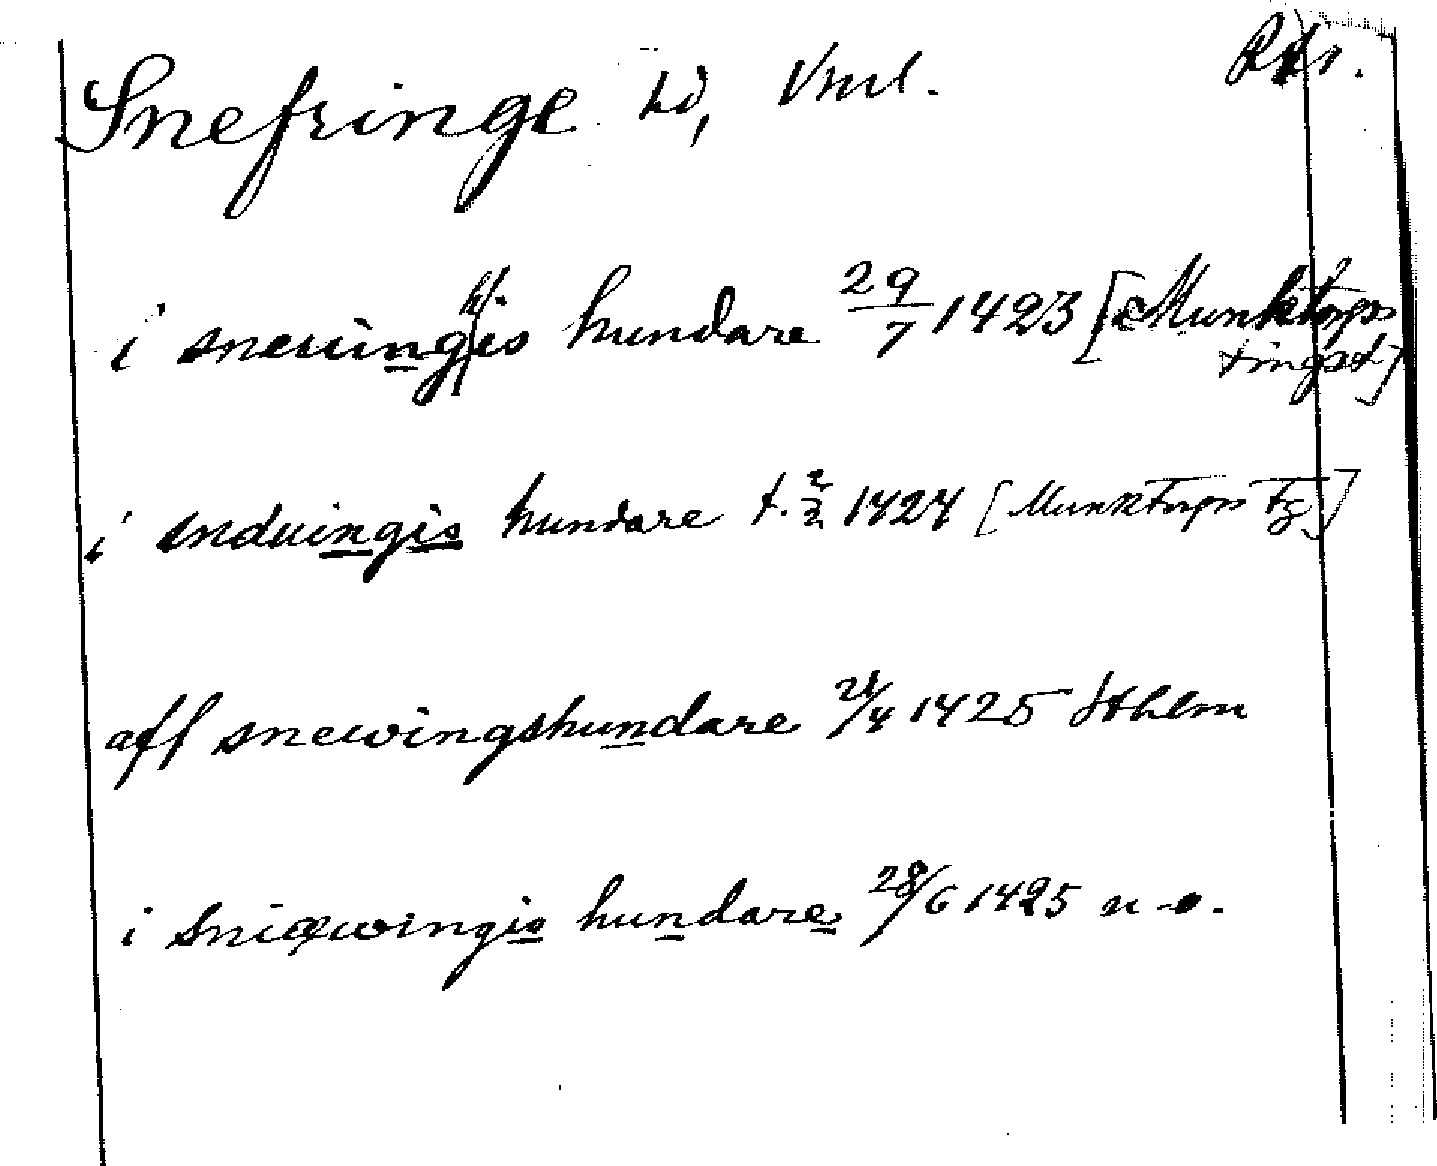 Snefringe hd, Vml. RAr.
i sneuingis hundare 29/7 1423 [Munktorps
tingst]
i snduingis hundare t. 2/2 1424 [Munktorps tg]
aff snewingshundare 21/4 1425 Sthlm
i sniæwingis hundare 28/6 1425 u.o.